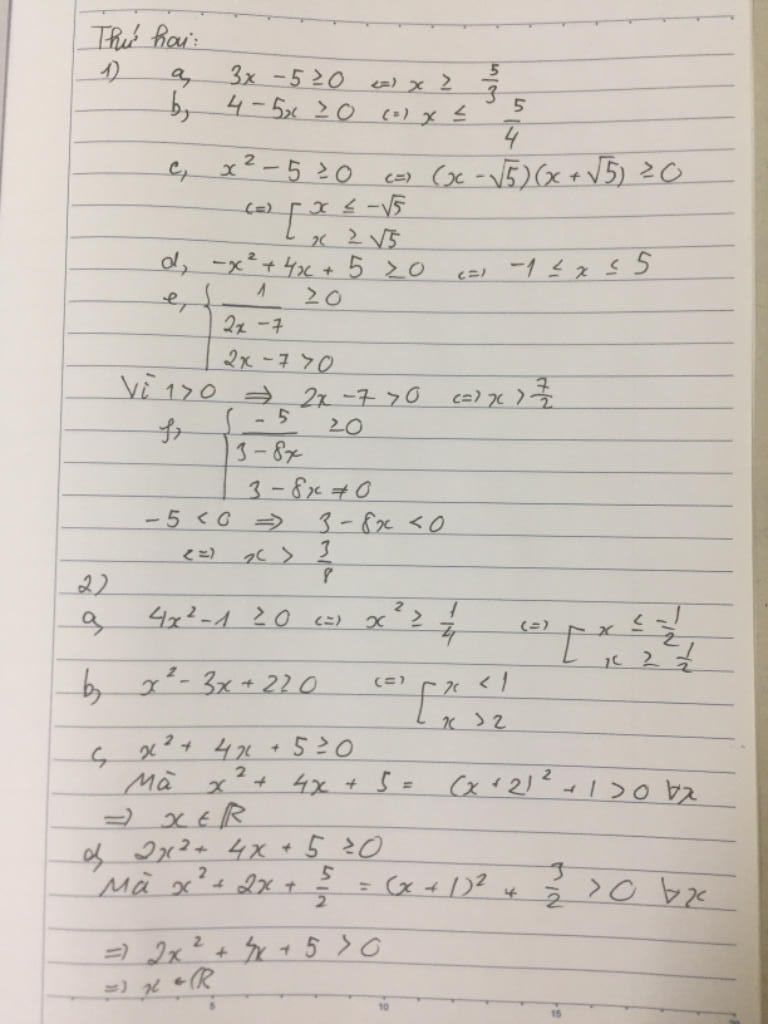 Thứ hai:
1) a, 3x - 5 ≥ 0 <=> x ≥ 5/3
b, 4 - 5x ≥ 0 <=> x ≤ 5/4
c, x² - 5 ≥ 0 <=> (x - √5)(x + √5) ≥ 0
<=> [ x ≤ -√5
x ≥ √5
d, -x² + 4x + 5 ≥ 0 <=> -1 ≤ x ≤ 5
e, { 1/(2x - 7) ≥ 0
2x - 7 > 0
Vì 1 > 0 => 2x - 7 > 0 <=> x > 7/2
f, { -5/(3 - 8x) ≥ 0
3 - 8x ≠ 0
-5 < 0 => 3 - 8x < 0
<=> x > 3/8
2)
a, 4x² - 1 ≥ 0 <=> x² ≥ 1/4 <=> [ x ≤ -1/2
x ≥ 1/2
b, x² - 3x + 2 ≥ 0 <=> [ x < 1
x > 2
c, x² + 4x + 5 ≥ 0
Mà x² + 4x + 5 = (x + 2)² + 1 > 0 ∀x
=> x ∈ R
d, 2x² + 4x + 5 ≥ 0
Mà x² + 2x + 5/2 = (x + 1)² + 3/2 > 0 ∀x
=> 2x² + 4x + 5 > 0
=> x ∈ R
5 10 15